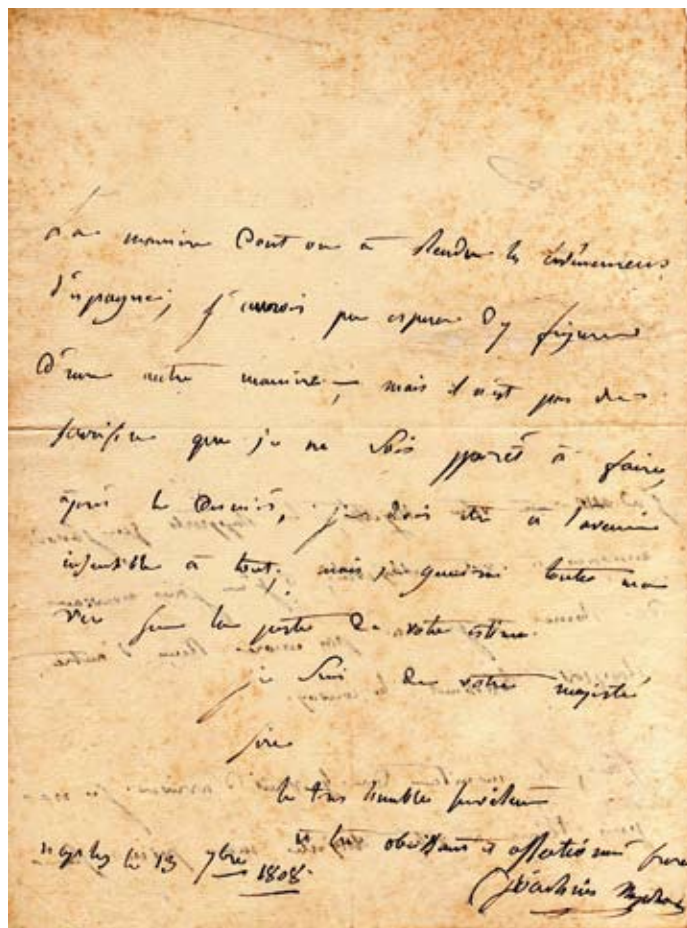 la manière dont on a rendu les evènemens
d'espagne, j'aurois pu esperer d'y figurer
d'une autre manière, mais il n'est pas de
sacrifice que je ne sois prêt à faire,
après le dernier, je dois être à l'avenir
insensible à tout, mais je gemirai toute ma
vie sur la perte de votre estime.
je suis de votre majesté
sire
le très humble serviteur
et très obeissant et affectionné frere
naples le 13 7bre 1808.
Joachim Napoleon